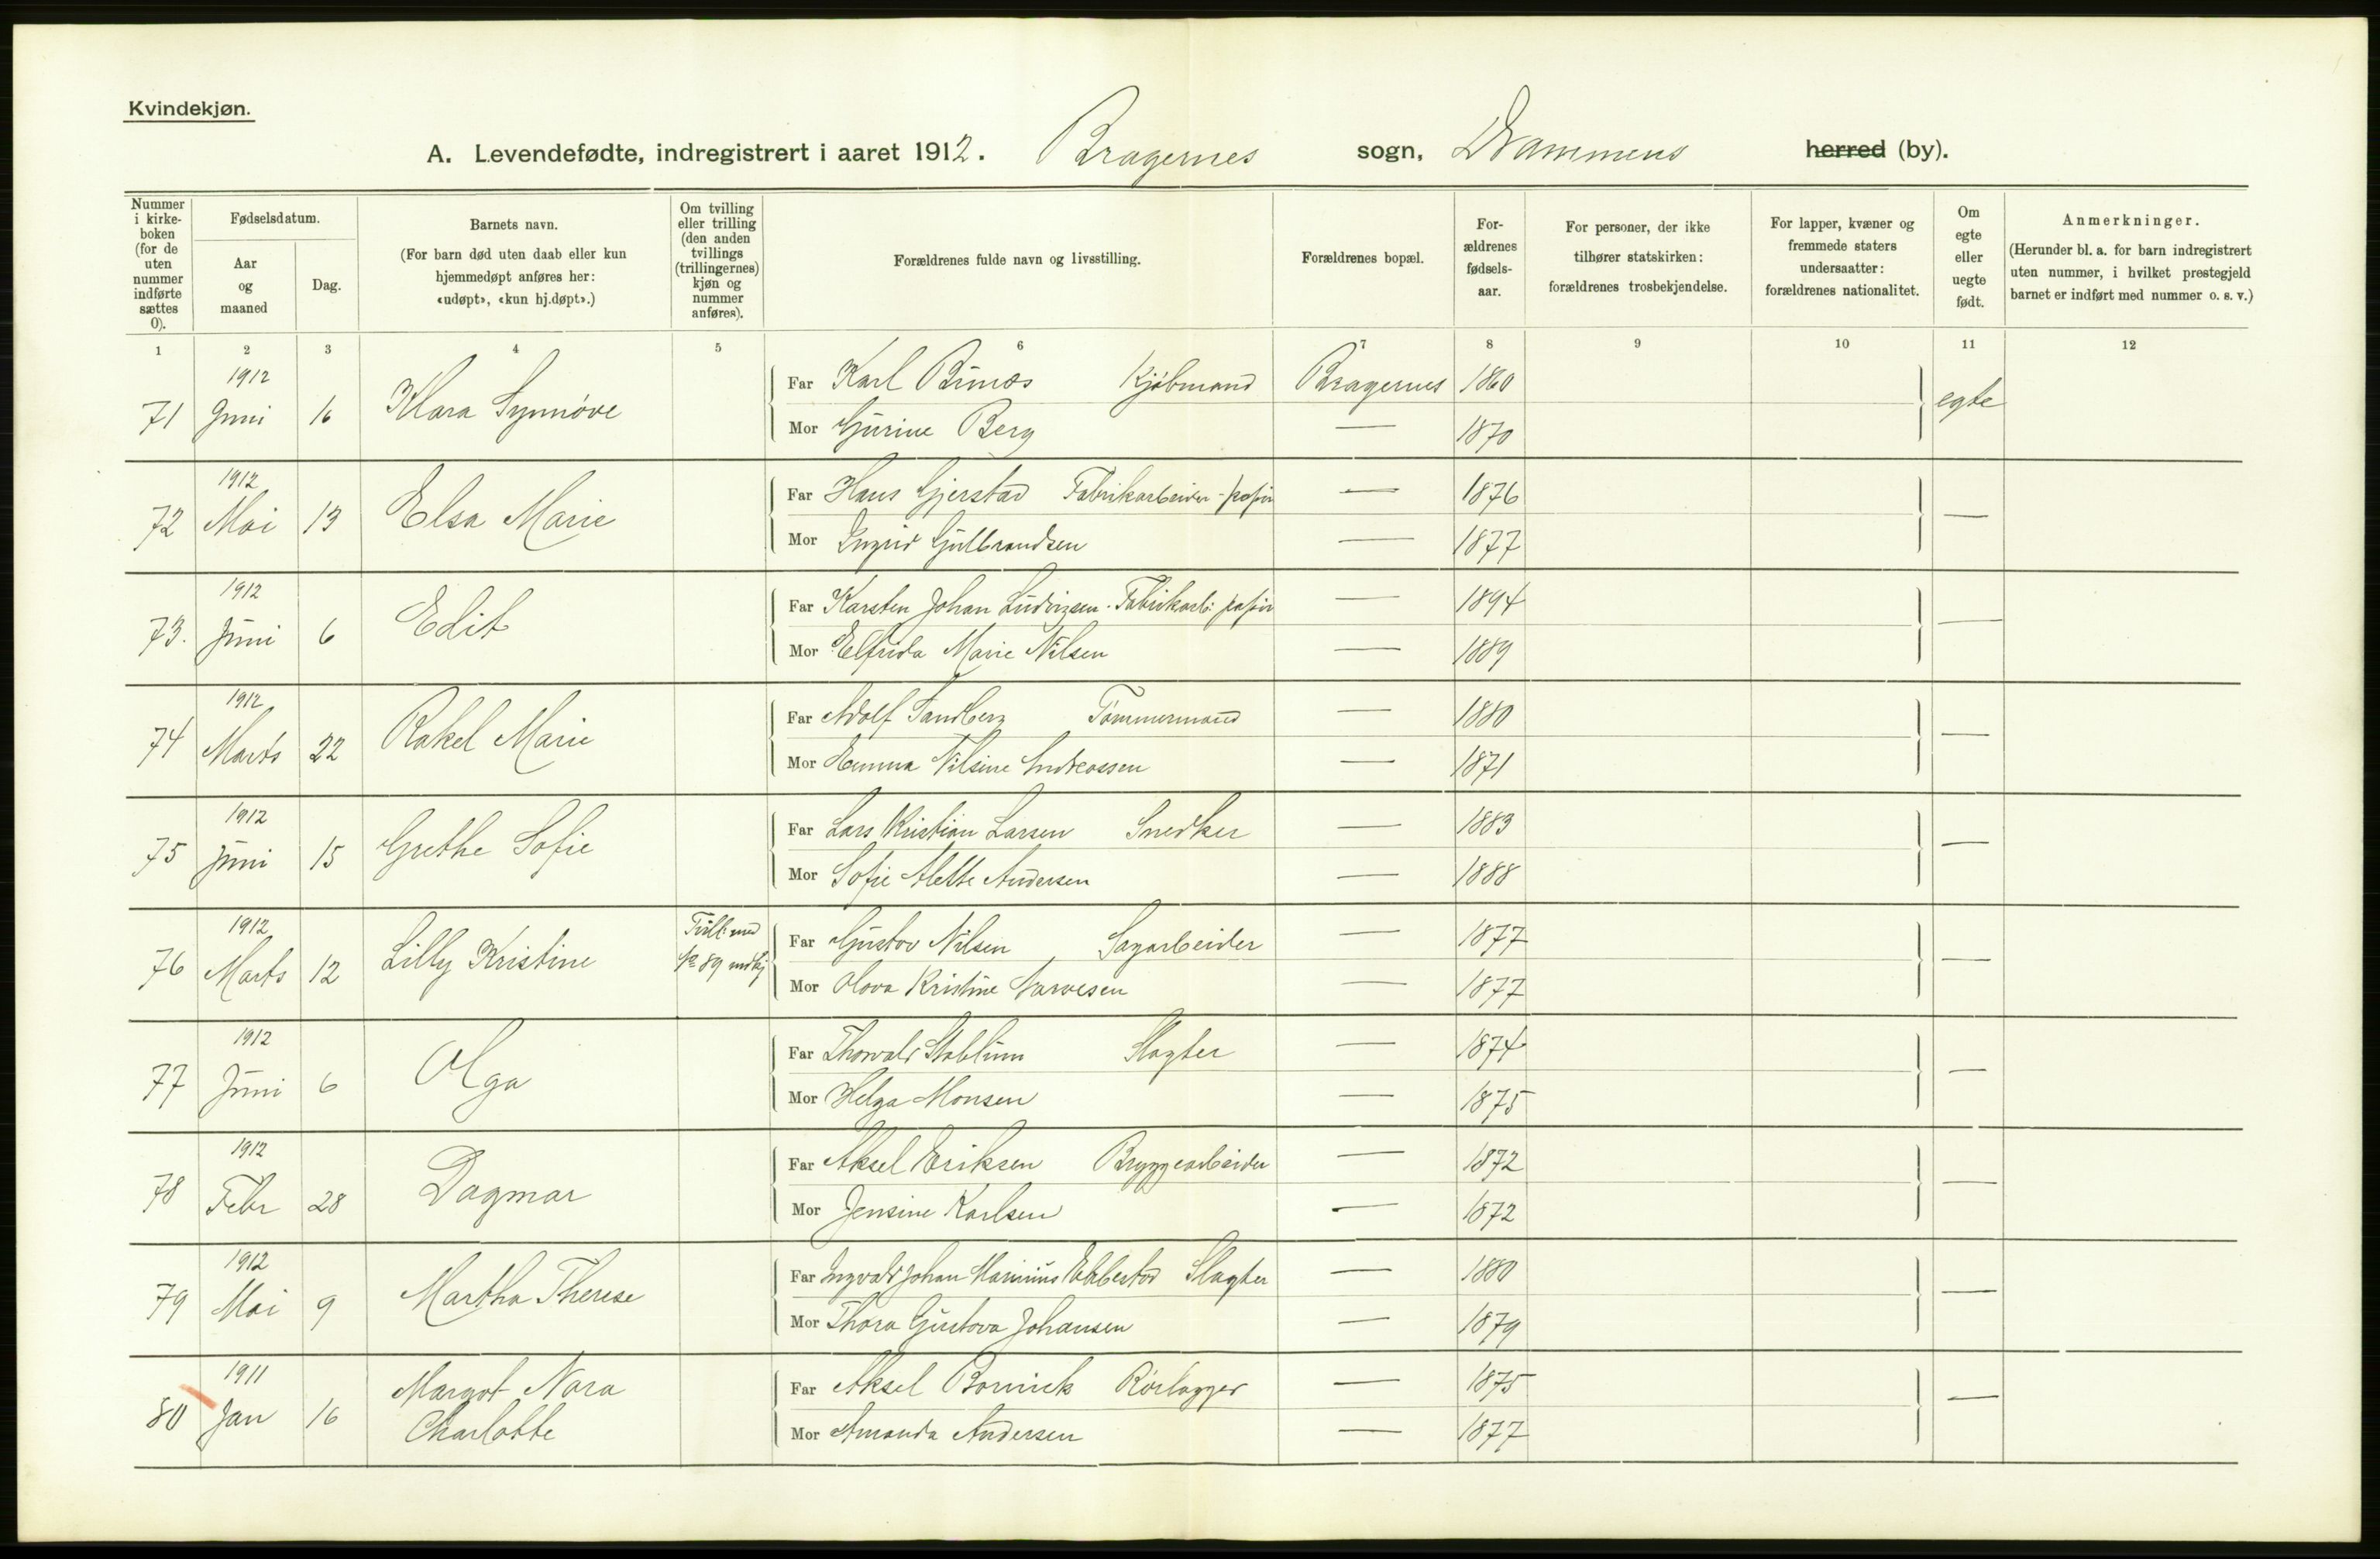 Kvindekjøn.
A. Levendefødte, indregistrert i aaret 1912. Bragernes sogn, Drammens herred (by).
Nummer i kirke-boken (for de uten nummer indførte sættes 0).
Fødselsdatum.
Aar og maaned
Dag.
Barnets navn.
(For barn død uten daab eller kun hjemmedøpt anføres her: «udøpt», «kun hj.døpt».)
Om tvilling eller trilling (den anden tvillings (trillingernes) kjøn og nummer anføres).
Forældrenes fulde navn og livsstilling.
Forældrenes bopæl.
For-ældrenes fødsels-aar.
For personer, der ikke tilhører statskirken: forældrenes trosbekjendelse.
For lapper, kvæner og fremmede staters undersaatter: forældrenes nationalitet.
Om egte eller uegte født.
Anmerkninger.
(Herunder bl. a. for barn indregistrert uten nummer, i hvilket prestegjeld barnet er indført med nummer o. s. v.)
1 2 3 4 5 6 7 8 9 10 11 12
71 1912 Juni 16 Klara Synnøve Far Karl Kjøbmand Bragernes 1860 egte
Mor Gurine Berg — 1870
72 1912 Mai 13 Elsa Marie Far Hans Gjerstad Fabrikarbeider - papir — 1876 —
Mor Ingrid Gulbrandsen — 1877
73. 1912 Juni 6 Edit Far Karsten Johan Ludvigsen. Fabrikarb: papir — 1894 —
Mor Elfrida Marie Nilsen — 1889
74 1912 Marts 22 Rakel Marie Far Adolf Sandberg Tømmermand — 1880 —
Mor Hemma Nilsine Andreassen — 1871
75 1912 Juni 15 Grethe Sofie Far Lars Kristian Larsen Snedker — 1883 —
Mor Sofie Alette Andersen — 1888
76 1912 Marts 12 Lilly Kristine Tvill: med № 89 mdkj Far Gustav Nilsen Sagarbeider — 1877 —
Mor Olova Kristine Narvesen — 1877
77 1912 Juni 6 Olga Far Thorvald Stablum Slagter — 1874 —
Mor Helga Monsen — 1875
78 1912 Febr 28 Dagmar Far Aksel Eriksen Bryggearbeider — 1872 —
Mor Jensine Karlsen — 1872
79 1912 Mai 9 Martha Therese Far Ingvald Johan Marinius Ebbestad Slagter — 1880 —
Mor Thora Gustava Johansen — 1879
80 1911 Jan 16 Margot Nora Charlotte Far Aksel Rørlægger — 1875 —
Mor Amanda Andersen — 1877